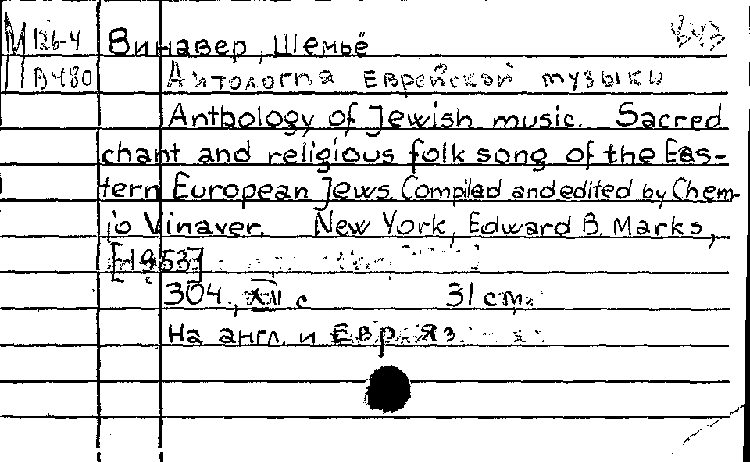 М 126-4 Винавер, Шемьё
В480 Антология еврейской музыки
Anthology of Jewish music. Sacred
chant and religious folk song of the Eas-
tern European Jews. Compiled and edited by Chem-
jo Vinaver. New York, Edward B. Marks,
[1953]
304, XII с 31 см.
На англ. и евр. яз.